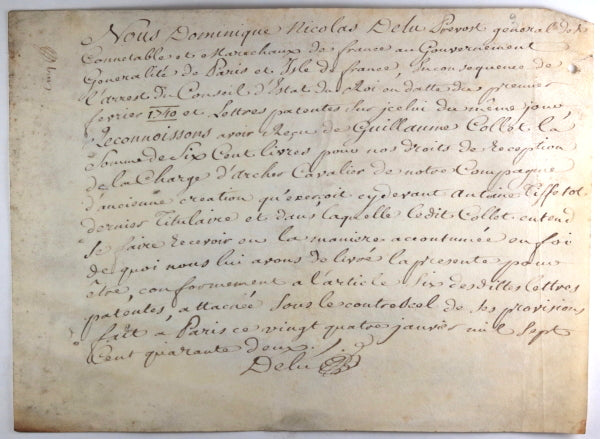 Nous Dominique Nicolas Delu Prevost general de la
Connetablee et Marechaux de france au Gouvernement
Generalité de Paris et Isle de france, En consequence de
L'arrest du Conseil d'Estat du Roi en datte du premier
fevrier 1740 et Lettres patentes sur jcelui du même jour,
Reconnoissons avoir Reçu de Guillaume Collot la
Somme de Six Cent livres pour nos droits de Reception
de la Charge d'Archer Cavalier de notre Compagnie
d'ancienne creation qu'exercoit cydevant Antoine Tiffetot
dernier Titulaire et dans laquelle ledit Collot entend
se faire Recevoir en la maniere accoutumée en foi
de quoi nous lui avons delivré la presente pour
être, conformement a l'article Six desdittes lettres
patentes, attachée Sous le contrescel de ses provisions
fait a Paris ce vingt quatre janvier mil Sept
Cent quarante deux ./.
Delu